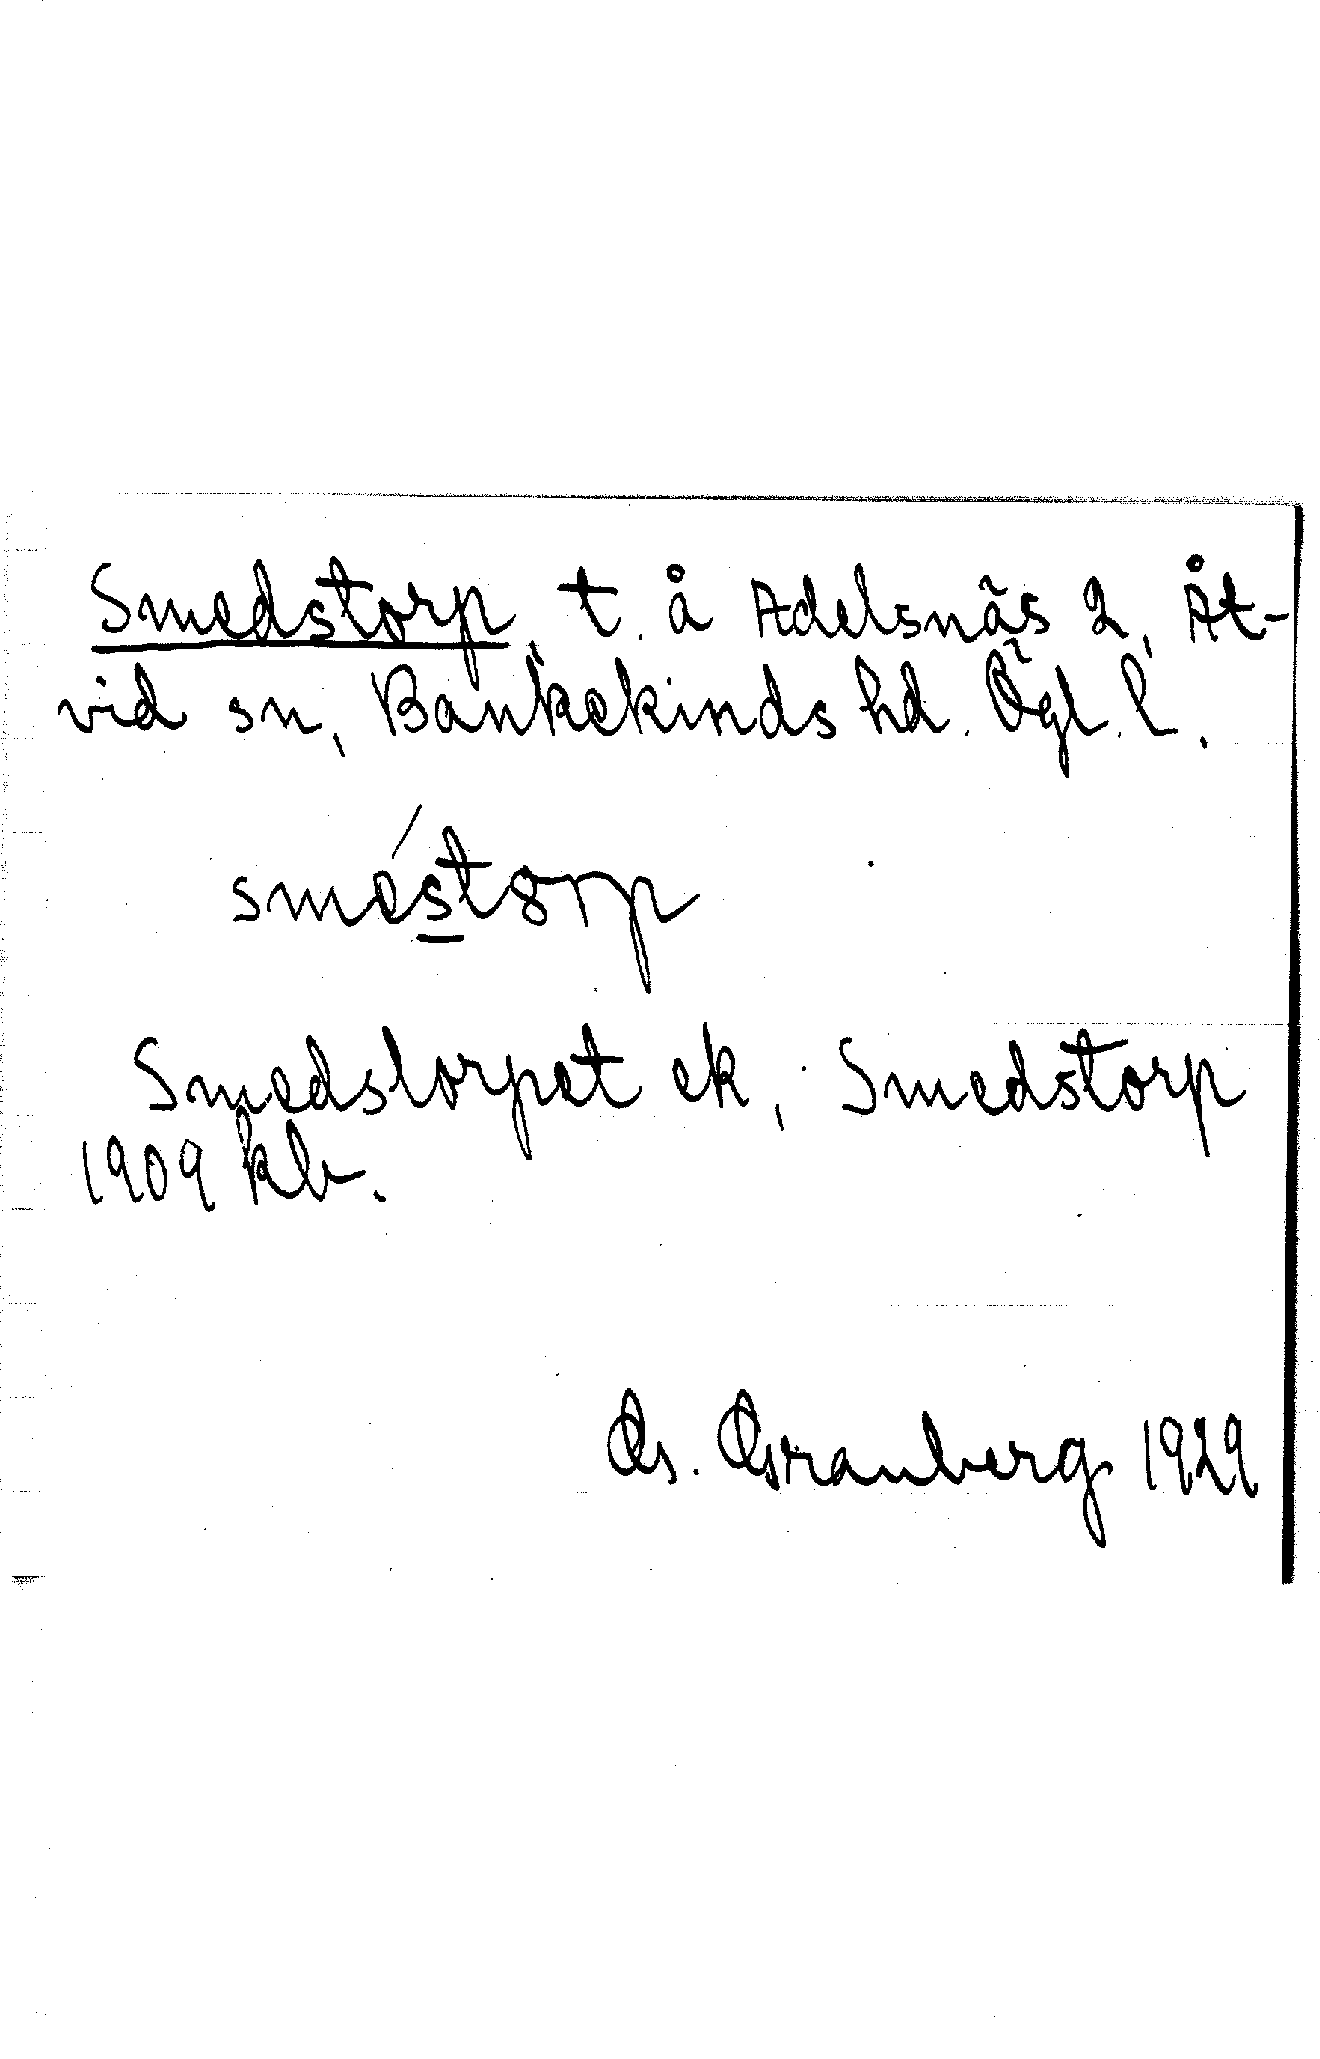 Smedstorp, t. å Adelsnäs 2, Åt-
vid sn, Bankekinds hd. Ögl. l.
sméstorp
Smedstorpet ek, Smedstorp
1909 kb.
G. Granberg 1929